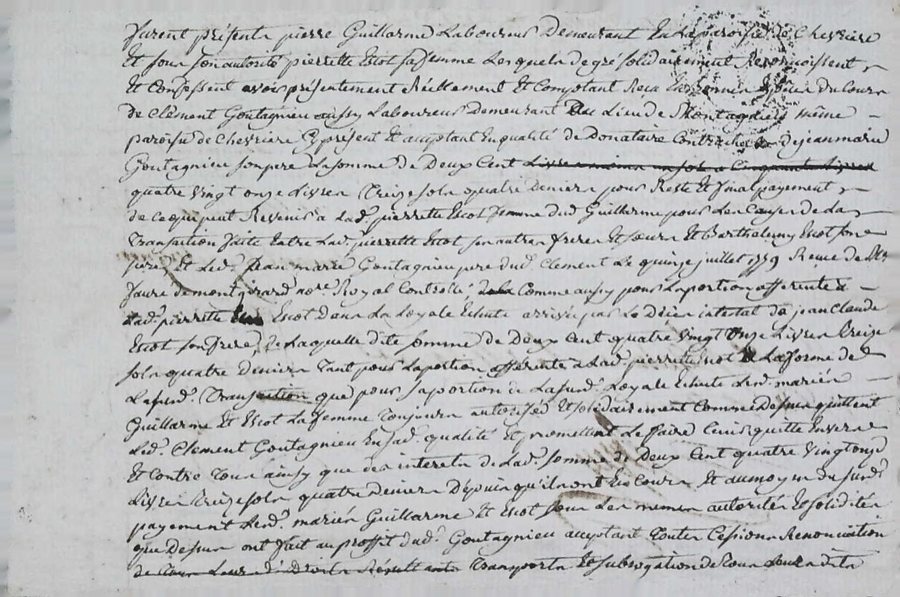 furent présents pierre Guillarme Laboureur Demeurant En la paroisse de Chevriere
Et sous son autorité pierrette Escot sa femme Lesquels de gré solidairement Reconnoissent
Et Confessent avoir présentement Réellement Et Comptant Receu En deniers du Cours
de Clément Goutagnieu aussy Laboureur Demeurant Au Lieu de Montagnieu même
paroisse de Chevriere Cy présent Et acceptant En qualité de Donataire Contractuel de jean marie
Goutagnieu son pere La somme de Deux Cent
quatre vingt onze Livres Treize sols quatre Deniers pour Reste Et final payement
de Ce qui peut Revenir à Lad. pierrette Escot femme dud. Guillarme pour Les Causes de La
Transaction faite Entre Lad. pierrette Escot ses autres freres Et sœurs Et Barthelemy Escot son
pere Et Led. Jean marie Goutagnieu pere dud. Clement Le quinze juillet 1759 Receue de Me
faure de montgirard nore Royal Controllé Comme aussy pour La portion afferente à
Lad. pierrette Escot Dans La Loyale Echute arrivée par Le Décès intestat de jean Claude
Escot son frere, De Laquelle dite somme de Deux Cent quatre vingt onze Livres Treize
sols quatre Deniers Tant pour La portion afferente à Lad. pierrette Escot De La forme de
La susd. Transaction que pour sa portion de La susd. Loyale Echute Lesd. mariés
Guillarme Et Escot La femme Toujours autorisée Et solidairement Comme Dessus quittent
Led. Clement Goutagnieu En sad. qualité Et promettent Le faire tenir quitte Envers
Et Contre Tous ainsy que des interets de Lad. somme de Deux Cent quatre vingt onze
Livres Treize sols quatre Deniers Depuis qu'ils ont Eu Cours, Et au moyen du susd.
payement Lesd. mariés Guillarme Et Escot sous Les memes autorités Et solidités
que Dessus ont fait au proffit dud. Goutagnieu acceptant Toutes Cessions Renonciation
de Tous Leurs Droits Résultants Transports Et subrogation de Tous Leurs dits